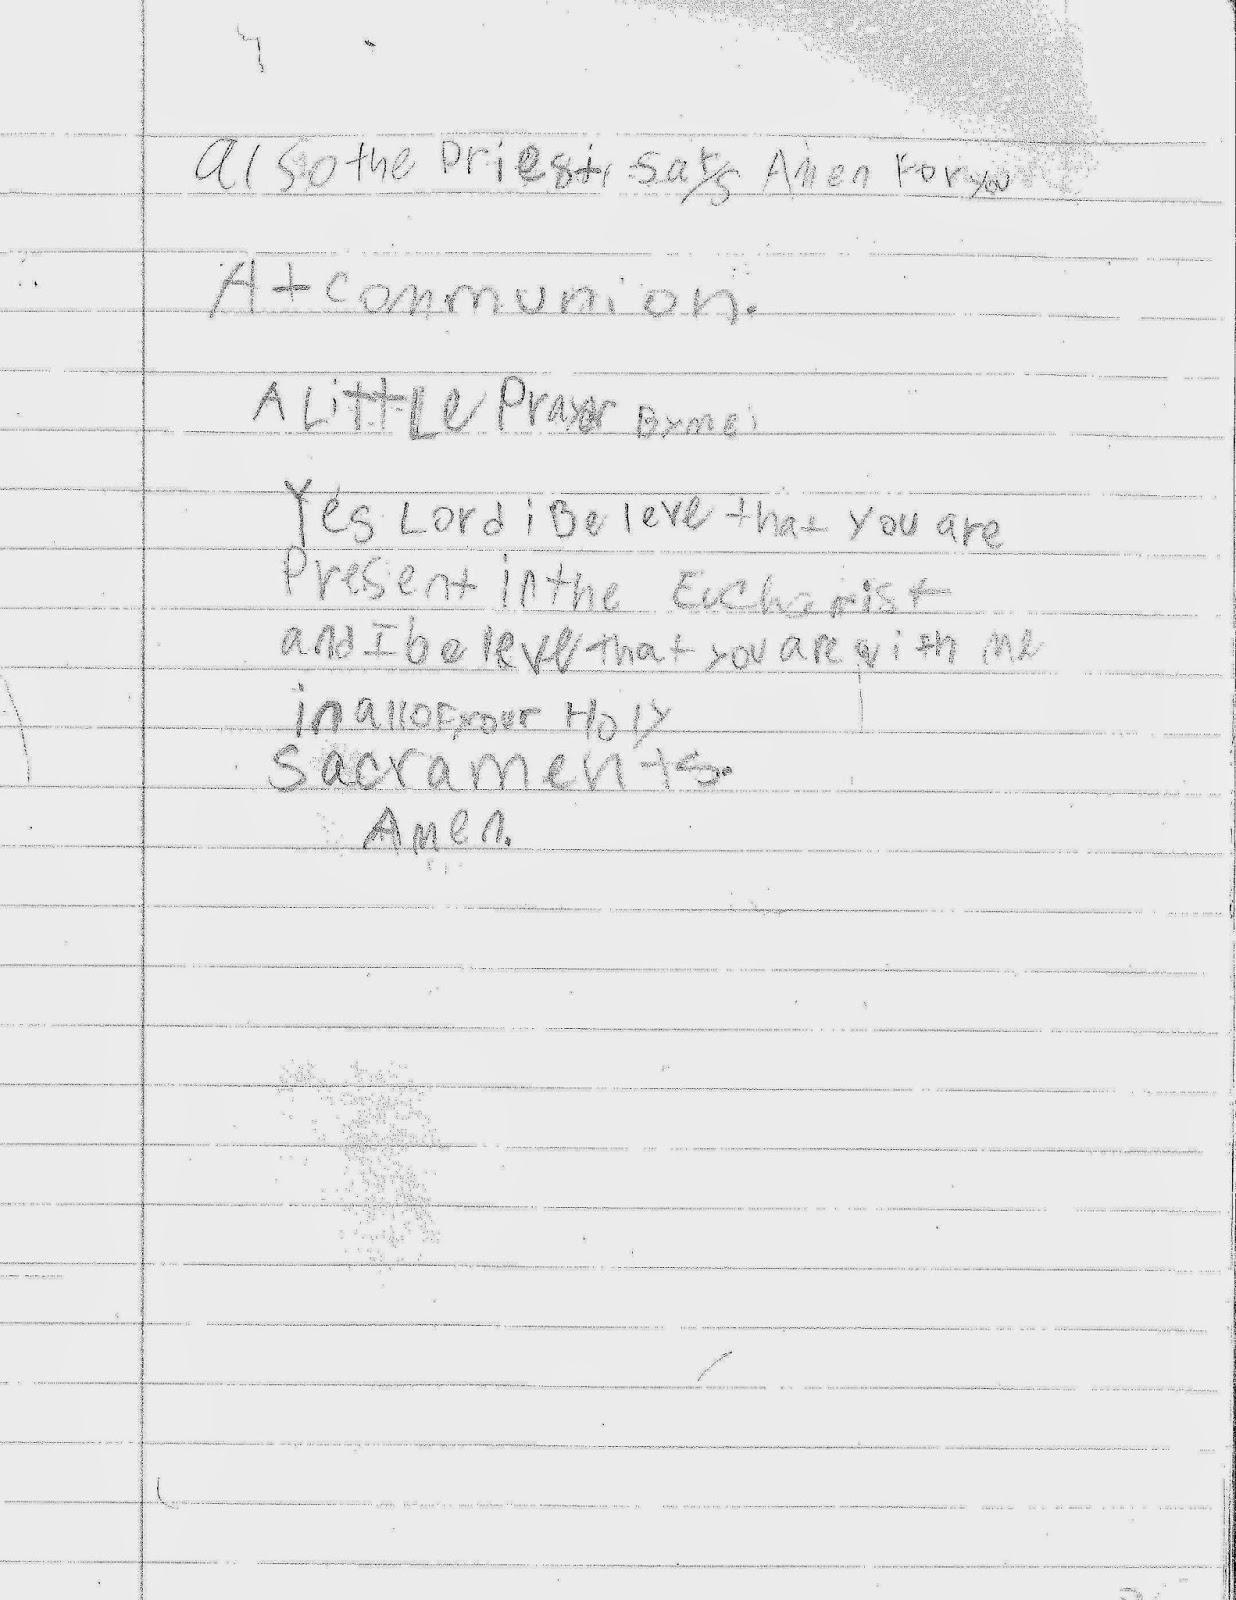 also the Priest, says Amen For you
At communion.
A Little Prayer By me:
Yes Lord i Beleve that you are
Present in the Eucharist
and I beleve that you are with me
in all oF your Holy
Sacraments.
Amen.